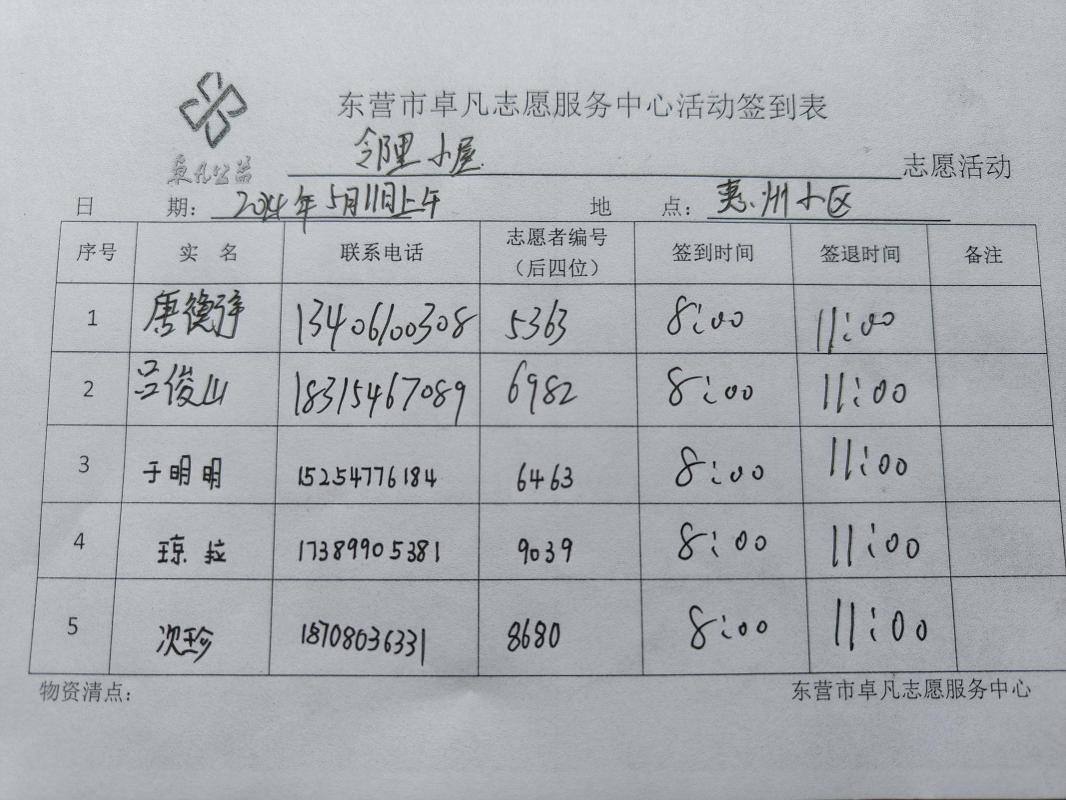 东营市卓凡志愿服务中心活动签到表
卓凡公益
邻里小屋 志愿活动
日 期：2024年5月11日上午 地 点：惠州小区
序号 实 名 联系电话 志愿者编号（后四位） 签到时间 签退时间 备注
1 唐 13406100308 5363 8:00 11:00
2 吕俊山 18315467089 6982 8:00 11:00
3 于明明 15254776184 6463 8:00 11:00
4 琼拉 17389905381 9039 8:00 11:00
5 次珍 18708036331 8680 8:00 11:00
物资清点： 东营市卓凡志愿服务中心